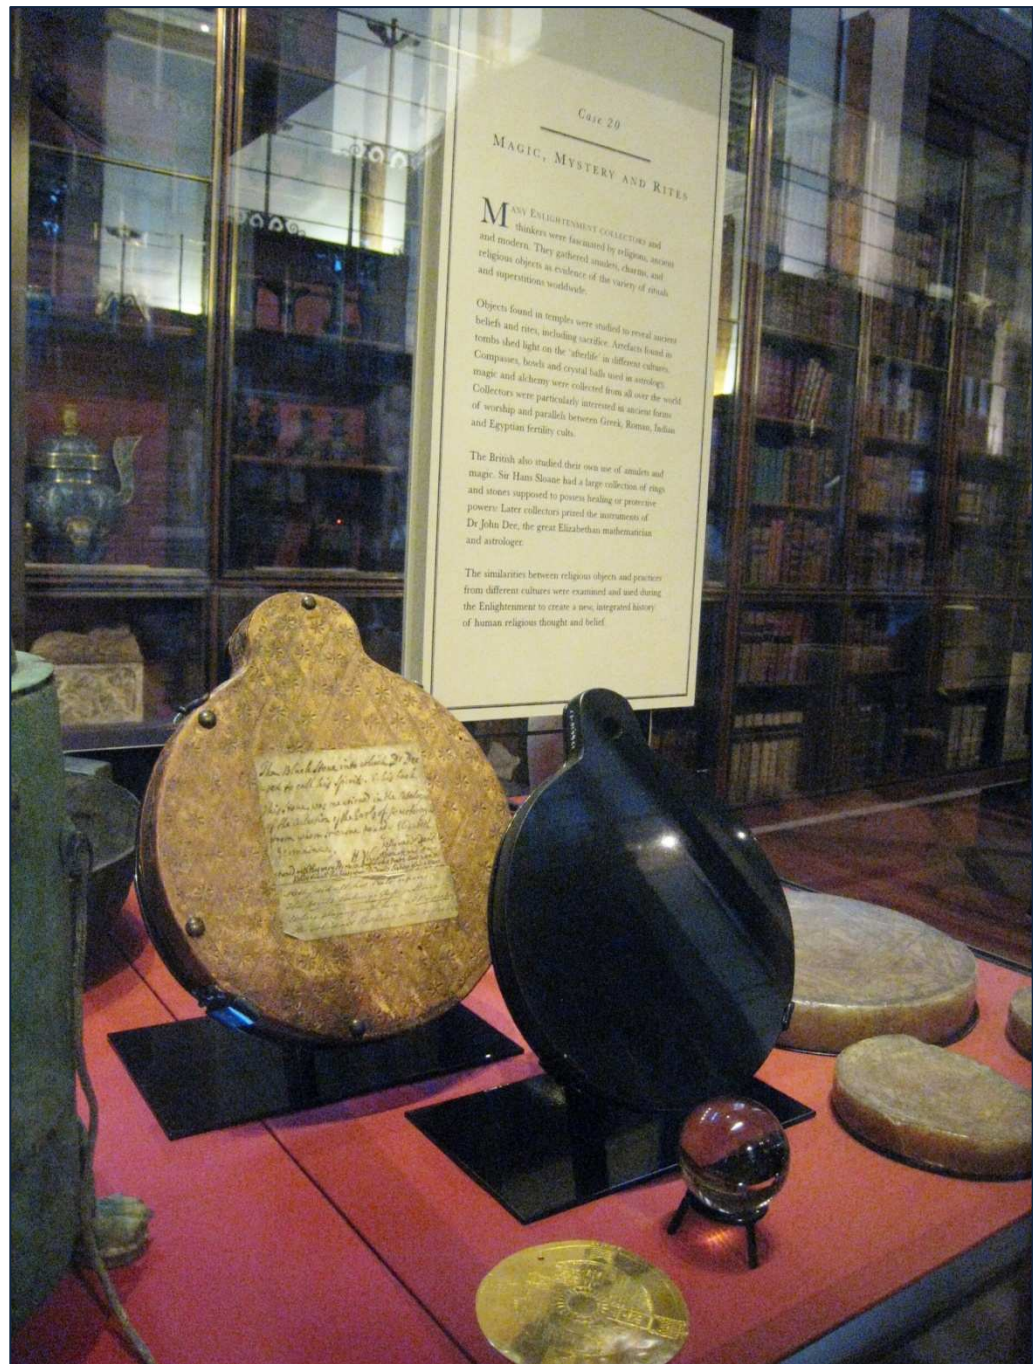 Case 20
MAGIC, MYSTERY AND RITES
MANY ENLIGHTENMENT COLLECTORS and
thinkers were fascinated by religions, ancient
and modern. They gathered amulets, charms, and
religious objects as evidence of the variety of rituals
and superstitions worldwide.
Objects found in temples were studied to reveal ancient
beliefs and rites, including sacrifice. Artefacts found in
tombs shed light on the 'afterlife' in different cultures.
Compasses, bowls and crystal balls used in astrology,
magic and alchemy were collected from all over the world.
Collectors were particularly interested in ancient forms
of worship and parallels between Greek, Roman, Indian
and Egyptian fertility cults.
The British also studied their own use of amulets and
magic. Sir Hans Sloane had a large collection of rings
and stones supposed to possess healing or protective
powers. Later collectors prized the instruments of
Dr John Dee, the great Elizabethan mathematician
and astrologer.
The similarities between religious objects and practices
from different cultures were examined and used during
the Enlightenment to create a new, integrated history
of human religious thought and belief.
Black Stone into which Dr Dee
used to call his spirits